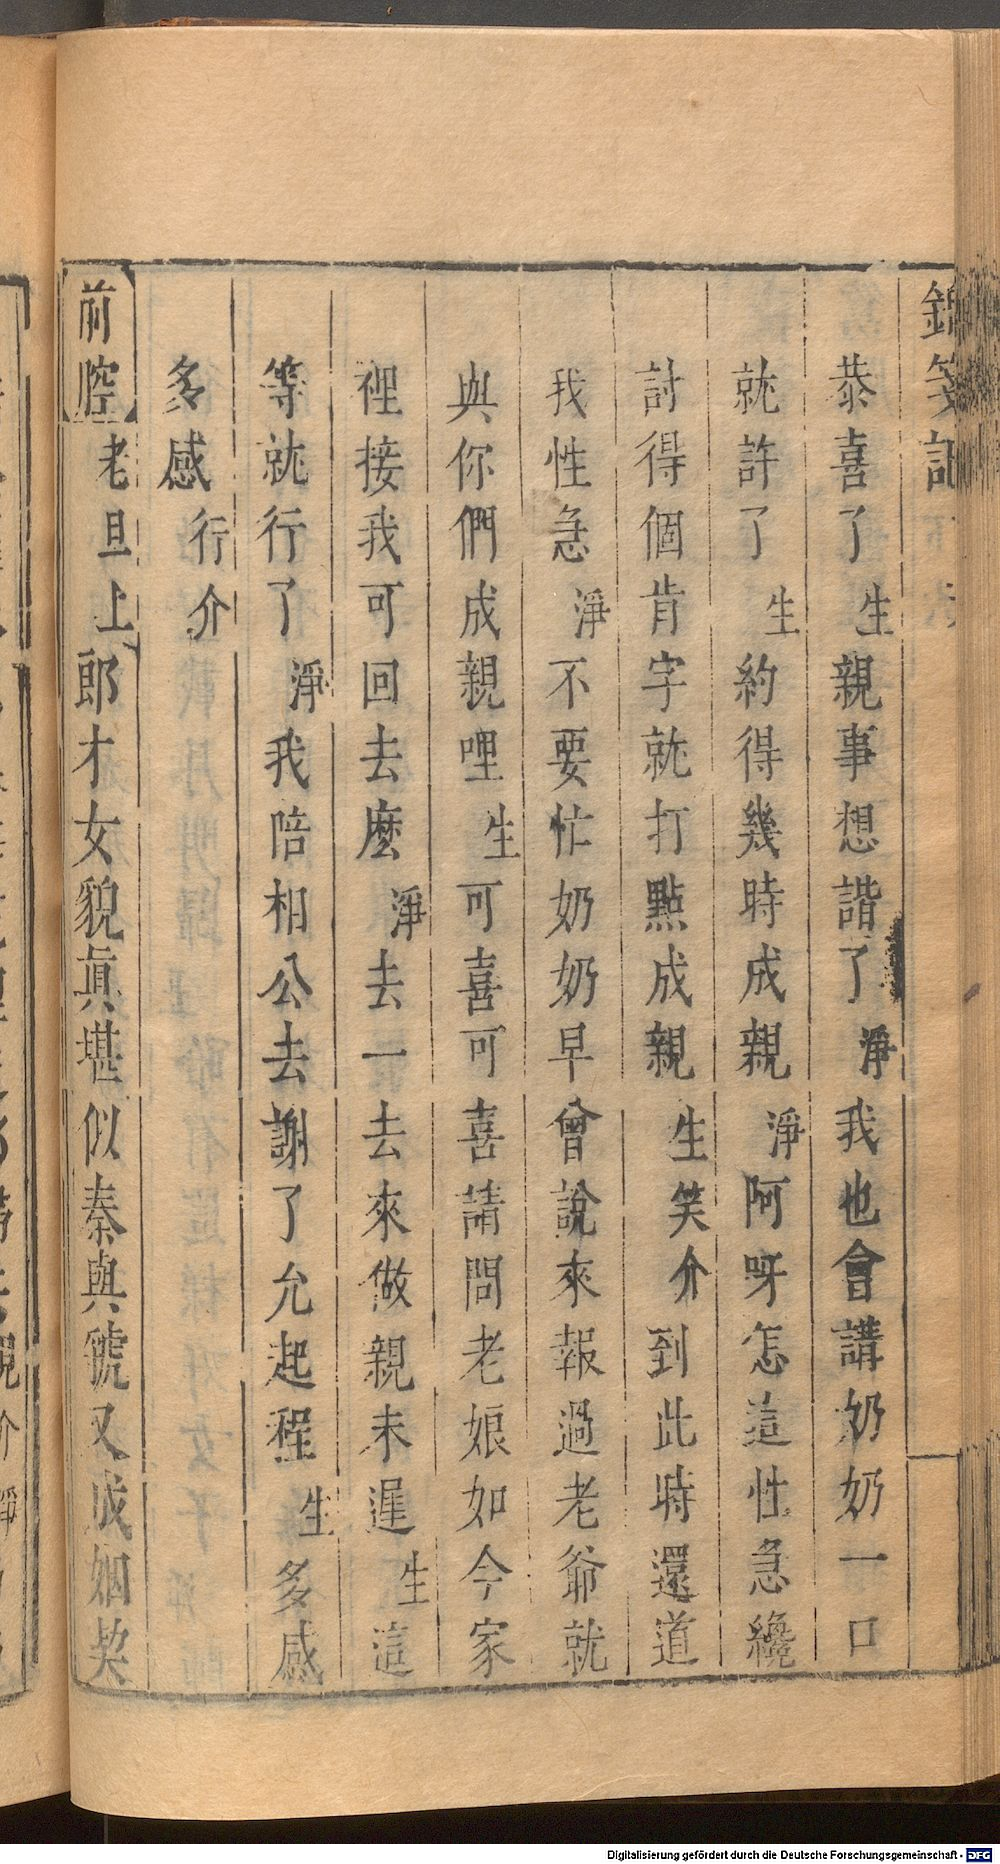 錦箋記
恭喜了生親事想諧了淨我也會講奶奶一口
就許了生約得幾時成親淨阿呀怎這性急纔
討得個肯字就打點成親生笑介到此時還道
我性急淨不要忙奶奶早曾說來報過老爺就
與你們成親哩生可喜可喜請問老娘如今家
裡接我可回去麼淨去一去來做親未遲生這
等就行了淨我陪相公去謝了允起程生多感
多感行介
前腔老旦上郎才女貌眞堪似秦與虢又成姻娎
Digitalisierung gefördert durch die Deutsche Forschungsgemeinschaft - DFG